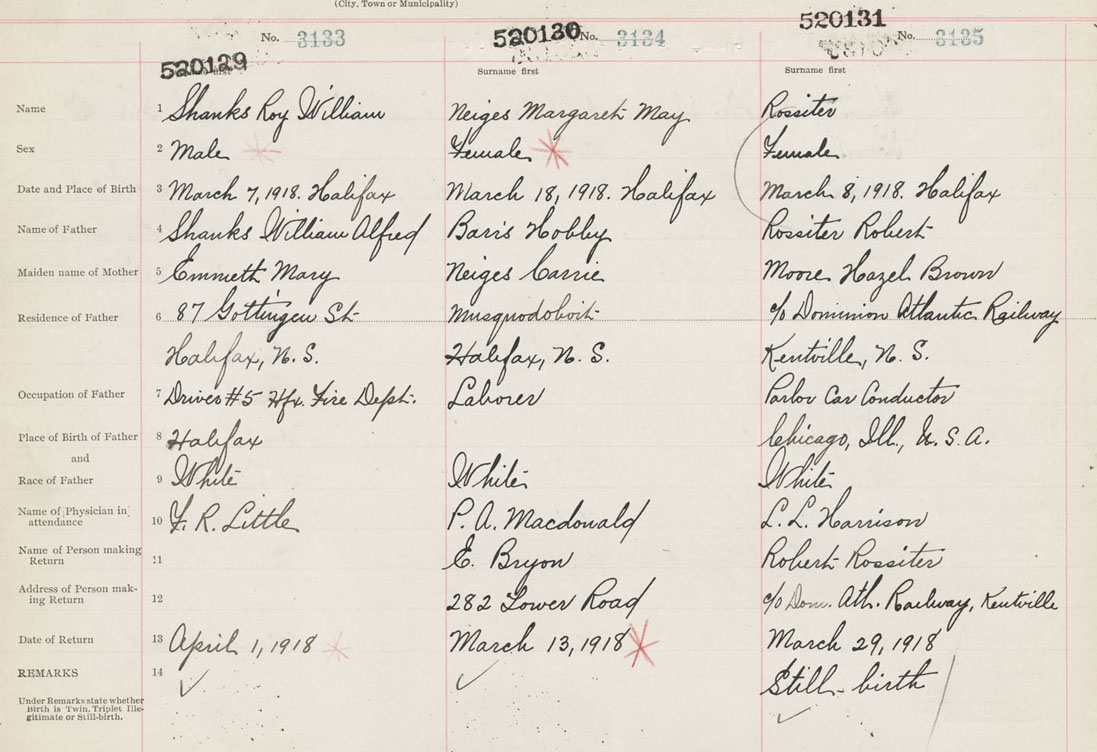 (City, Town or Municipality)
520129 No. 3133
520130 No. 3134
520131 No. 3135
Surname first
Surname first
Name 1 Shanks Roy William Neiges Margaret May Rossiter
Sex 2 Male Female Female
Date and Place of Birth 3 March 7, 1918. Halifax March 18, 1918. Halifax March 8, 1918. Halifax
Name of Father 4 Shanks William Alfred Baris Hobby Rossiter Robert
Maiden name of Mother 5 Emmett Mary Neiges Carrie Moore Hazel Brown
Residence of Father 6 87 Gottingen St Musquodoboit c/o Dominion Atlantic Railway
Halifax, N. S. Halifax, N. S. Kentville, N. S.
Occupation of Father 7 Driver #5 Hfx. Fire Dept. Laborer Parlor Car Conductor
Place of Birth of Father 8 Halifax Chicago, Ill., U. S. A.
and
Race of Father 9 White White White
Name of Physician in attendance 10 F. R. Little P. A. Macdonald L. L. Harrison
Name of Person making Return 11 E. Bryon Robert Rossiter
Address of Person mak-ing Return 12 282 Lower Road c/o Dom. Atl. Railway, Kentville
Date of Return 13 April 1, 1918 March 13, 1918 March 29, 1918
REMARKS 14 Still-birth
Under Remarks state whether
Birth is Twin, Triplet Ille-
gitimate or Still-birth.